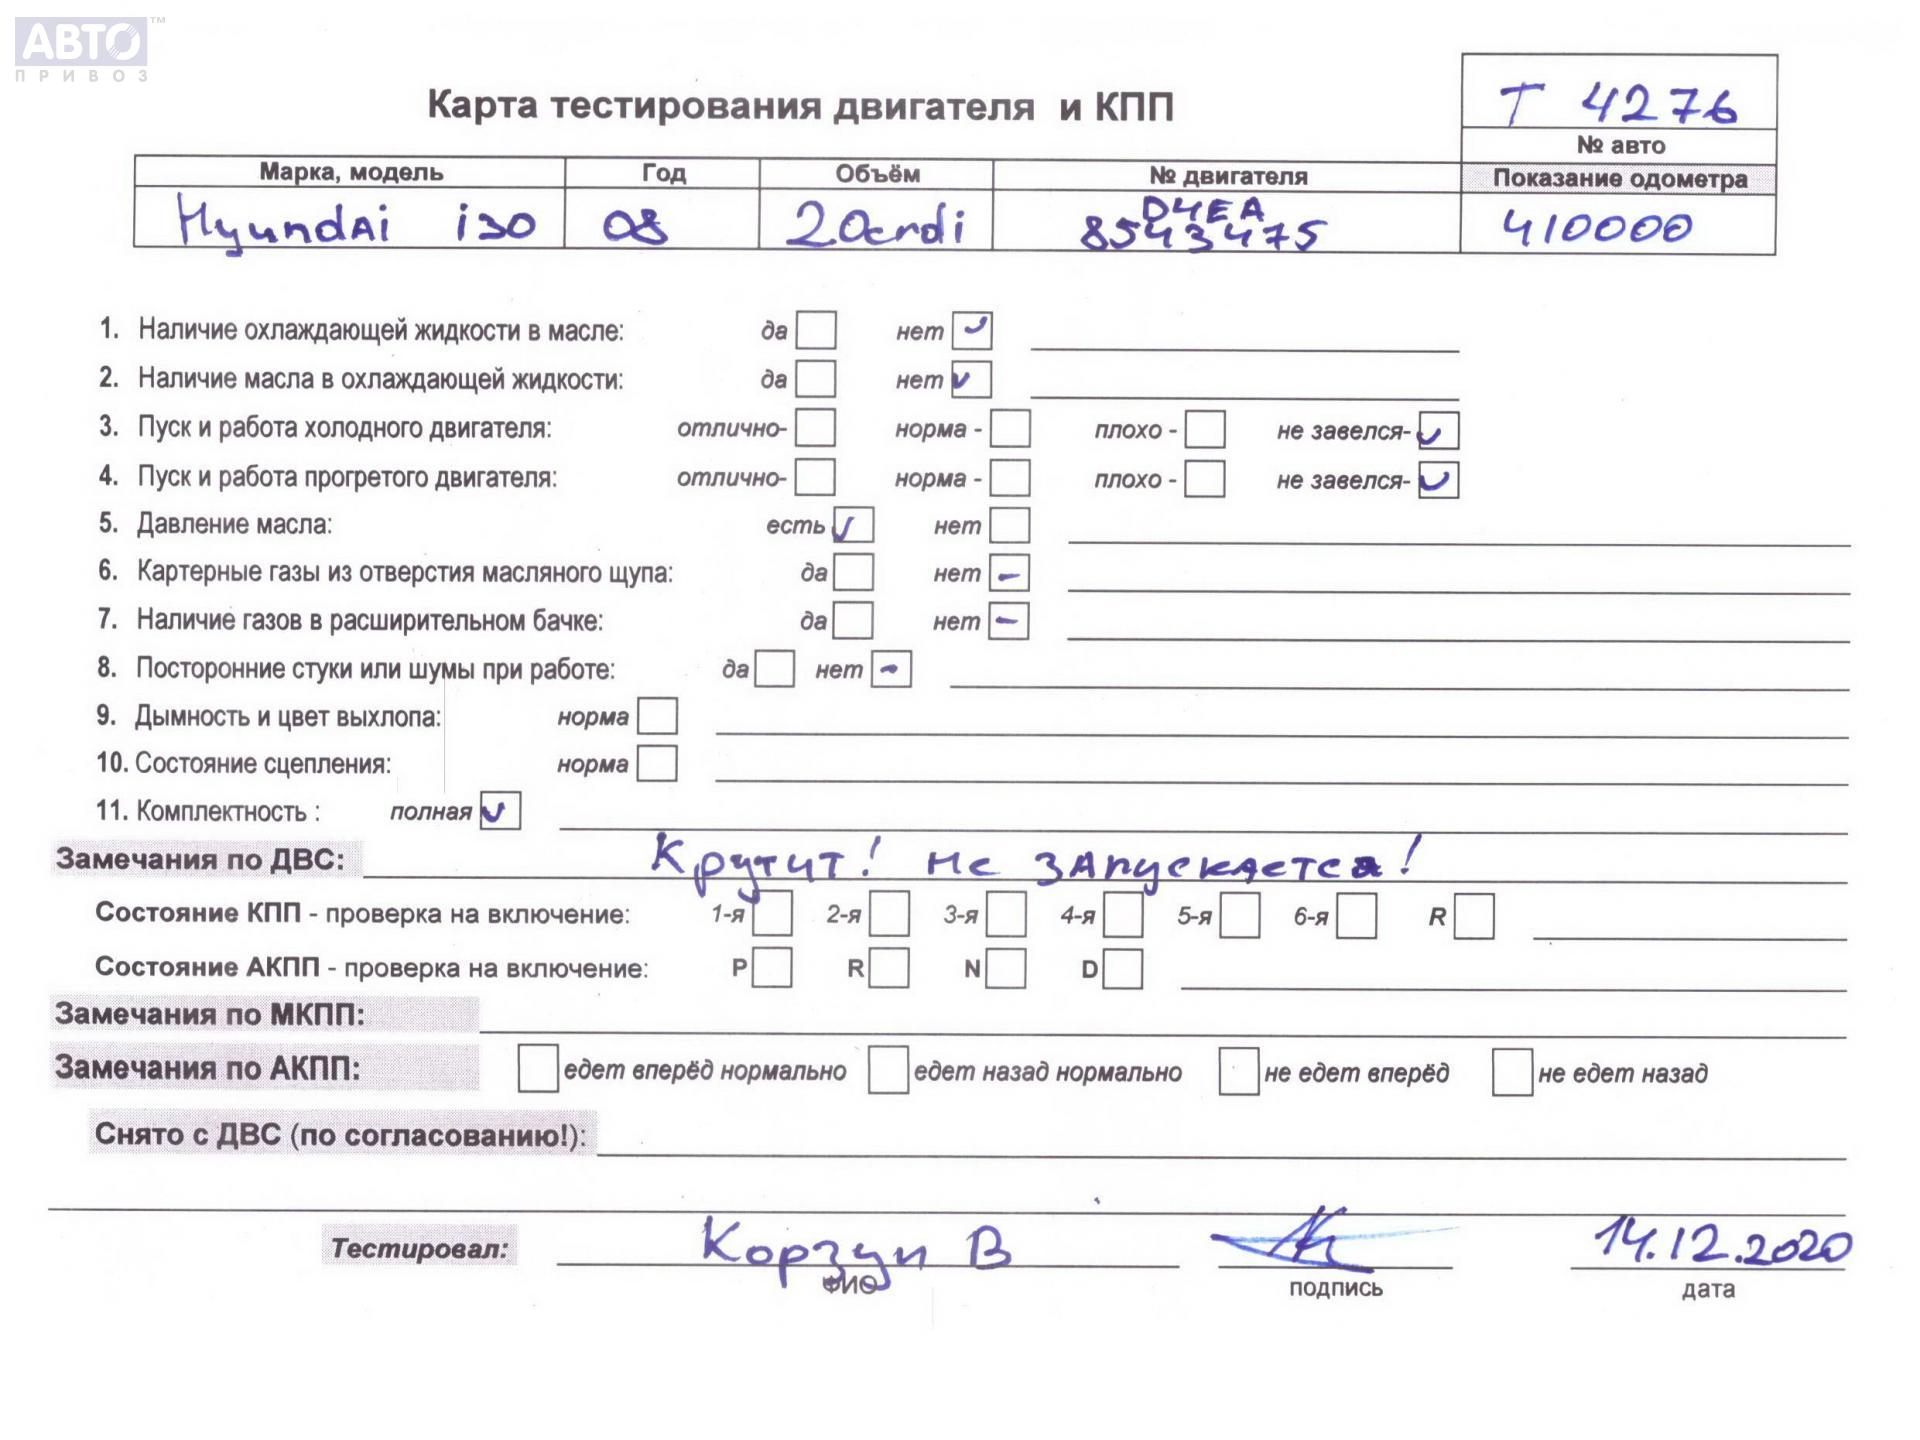 АВТО™
ПРИВОЗ
Карта тестирования двигателя и КПП
Т 4276
№ авто
Марка, модель Год Объём № двигателя Показание одометра
Hyundai i30 08 2.0crdi D4EA 8543475 410000
1. Наличие охлаждающей жидкости в масле: да нет
2. Наличие масла в охлаждающей жидкости: да нет
3. Пуск и работа холодного двигателя: отлично- норма - плохо - не завелся-
4. Пуск и работа прогретого двигателя: отлично- норма - плохо - не завелся-
5. Давление масла: есть нет
6. Картерные газы из отверстия масляного щупа: да нет
7. Наличие газов в расширительном бачке: да нет
8. Посторонние стуки или шумы при работе: да нет
9. Дымность и цвет выхлопа: норма
10. Состояние сцепления: норма
11. Комплектность : полная
Замечания по ДВС: Крутит! не запускается!
Состояние КПП - проверка на включение: 1-я 2-я 3-я 4-я 5-я 6-я R
Состояние АКПП - проверка на включение: P R N D
Замечания по МКПП:
Замечания по АКПП: едет вперёд нормально едет назад нормально не едет вперёд не едет назад
Снято с ДВС (по согласованию!):
Тестировал: Корзун В 14.12.2020
ФИО подпись дата